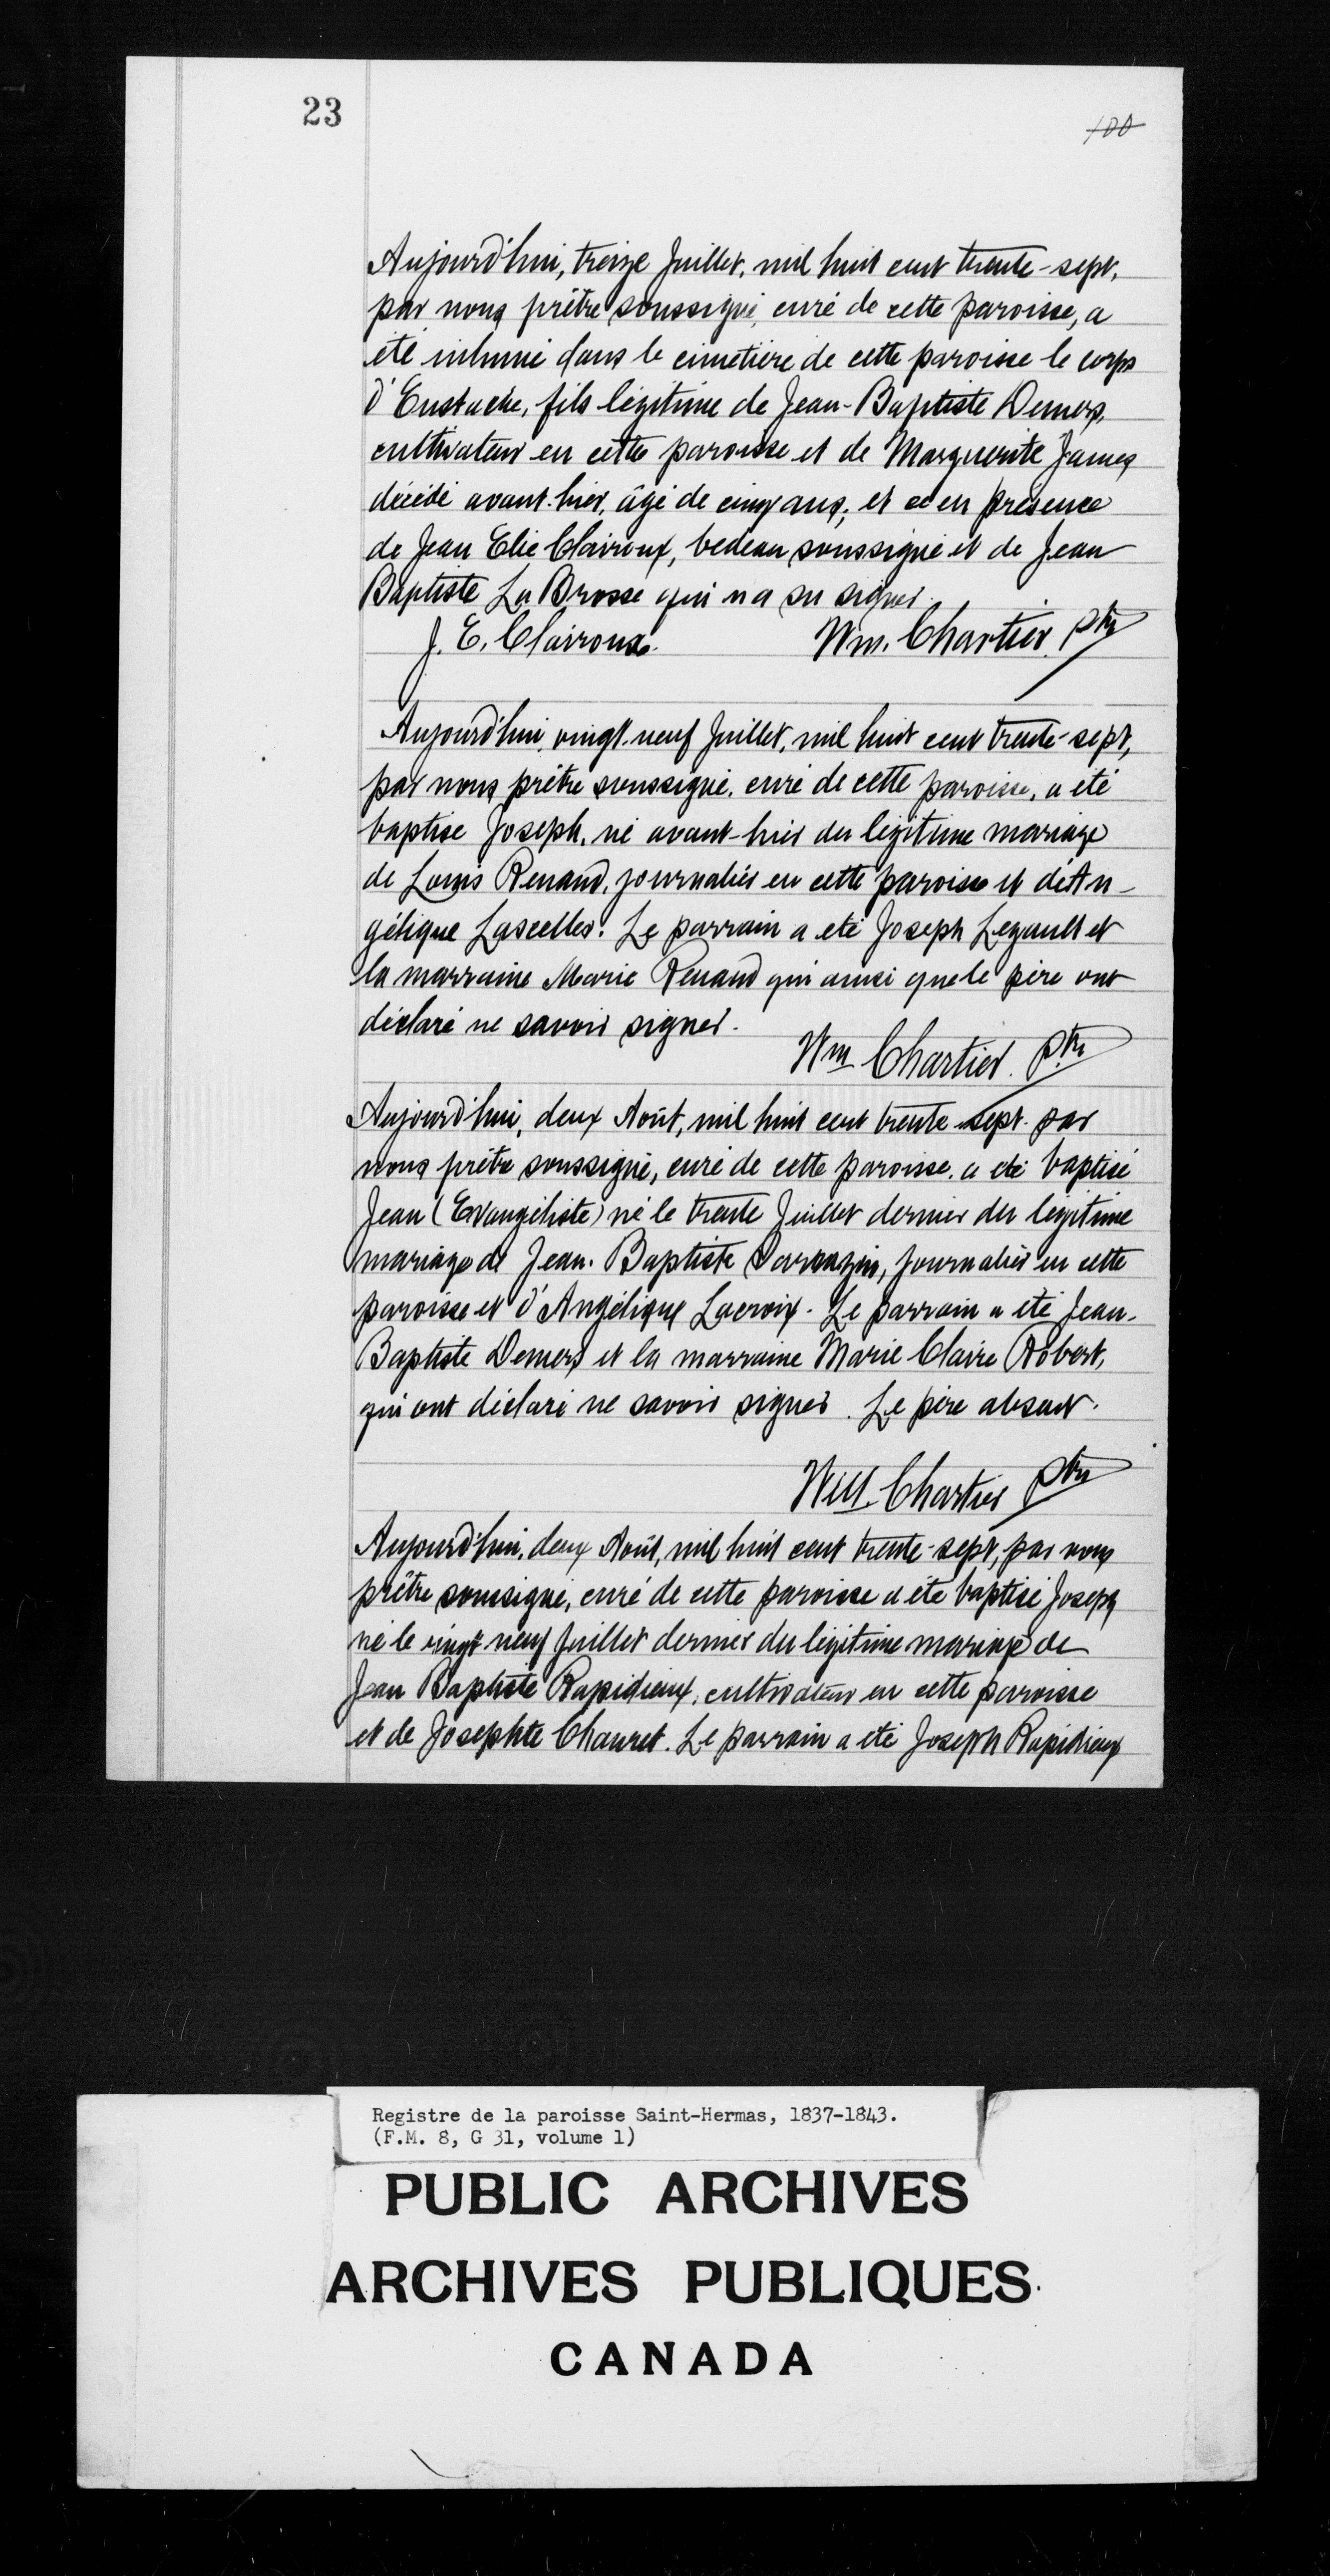 23
100
Aujourd'hui, treize Juillet, mil huit cent trente-sept,
par nous prêtre soussigné, curé de cette paroisse, a
été inhumé dans le cimetière de cette paroisse le corps
d'Eustache, fils légitime de Jean-Baptiste Demers,
cultivateur en cette paroisse et de Marguerite James
décédé avant-hier, âgé de cinq ans, et ce en présence
de Jean Elie Clairoux, bedeau soussigné et de Jean
Baptiste La Brosse qui n'a su signer.
J. E. Clairoux. Wm. Chartier ptre
Aujourd'hui, vingt-neuf Juillet, mil huit cent trente-sept,
par nous prêtre soussigné, curé de cette paroisse, a été
baptisé Joseph, né avant-hier du légitime mariage
de Louis Renaud, journalier en cette paroisse et d'An-
gélique Lascelles. Le parrain a été Joseph Legault et
la marraine Marie Renaud qui ainsi que le père ont
déclaré ne savoir signer.
Wm Chartier. ptre
Aujourd'hui, deux Août, mil huit cent trente-sept, par
nous prêtre soussigné, curé de cette paroisse, a été baptisé
Jean (Evangéliste) né le trente Juillet dernier du légitime
mariage de Jean-Baptiste Sarrazin, journalier en cette
paroisse et d'Angélique Lacroix. Le parrain a été Jean-
Baptiste Demers et la marraine Marie Claire Robert,
qui ont déclaré ne savoir signer. Le père absent.
Will. Chartier ptre
Aujourd'hui, deux Août, mil huit cent trente-sept, par nous
prêtre soussigné, curé de cette paroisse a été baptisé Joseph
né le vingt neuf Juillet dernier du légitime mariage de
Jean Baptiste Rapidieux, cultivateur en cette paroisse
et de Josephte Chauret. Le parrain a été Joseph Rapidieux
Registre de la paroisse Saint-Hermas, 1837-1843.
(F.M. 8, G 31, volume 1)
PUBLIC ARCHIVES
ARCHIVES PUBLIQUES
CANADA